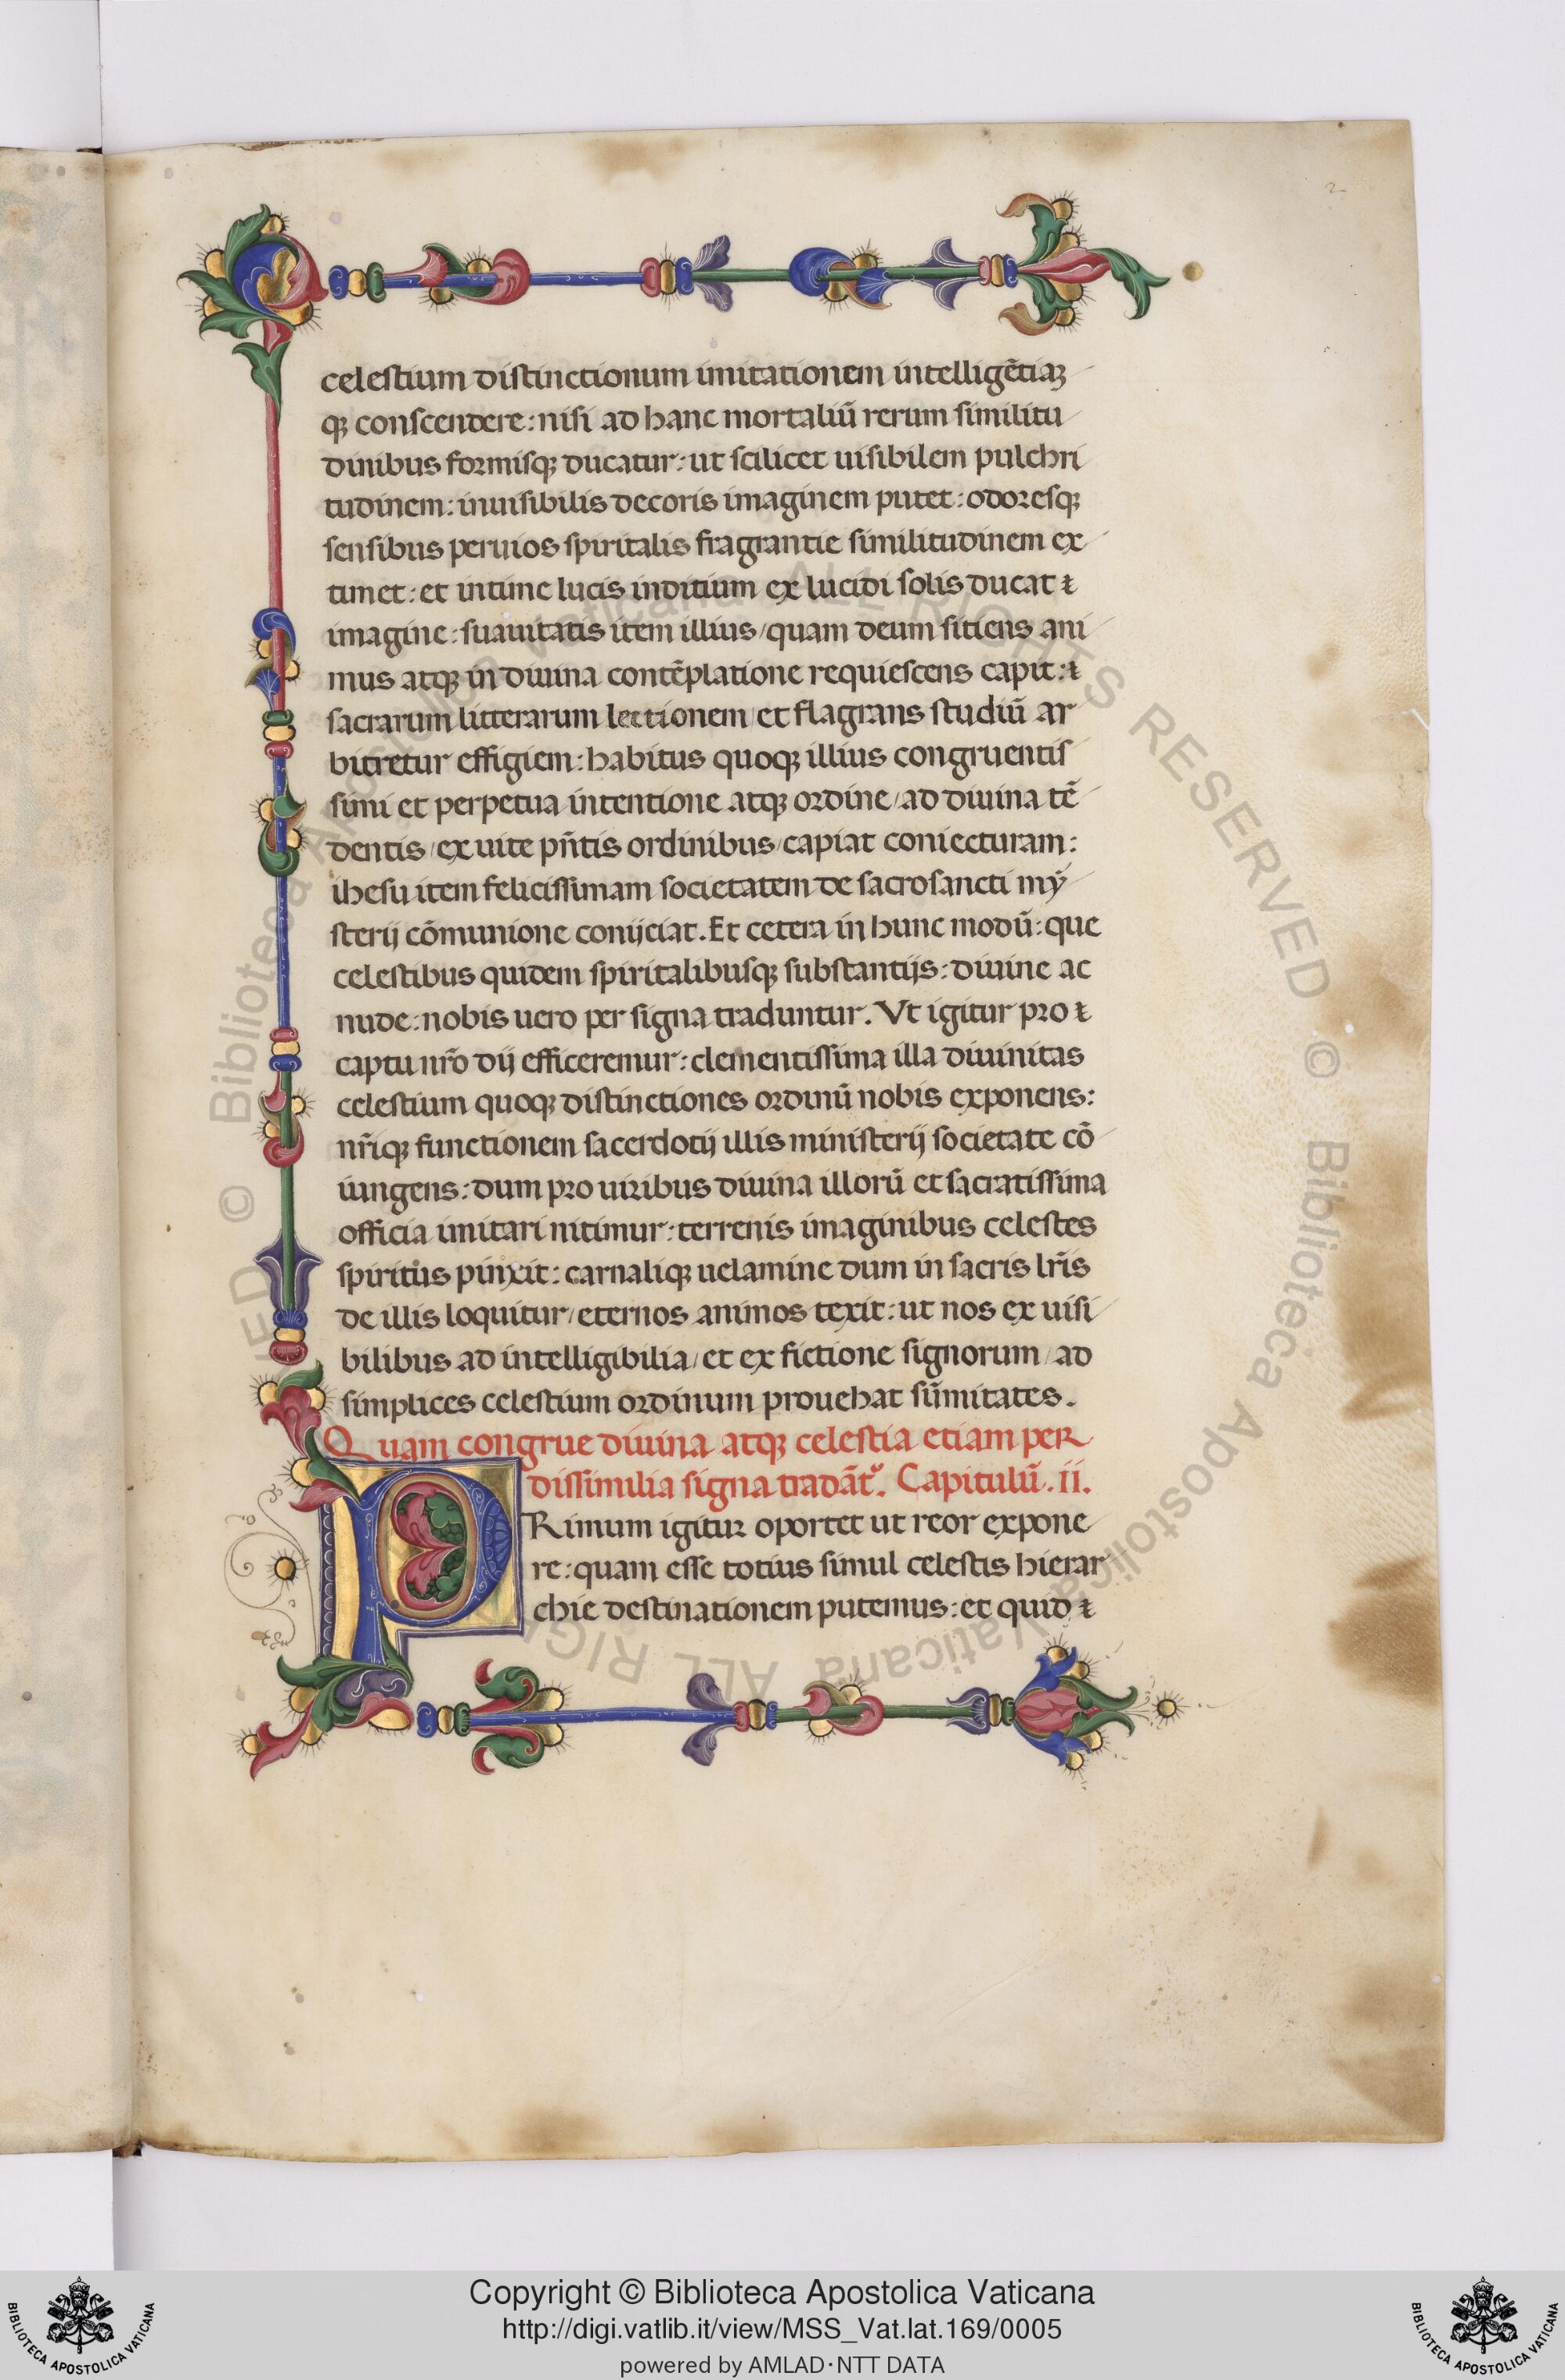 2
celestium distinctionum imitationem intelligẽtiaꝫ
qꝫ conscendere: nisi ad hanc mortaliũ rerum similitu
dinibus formisqꝫ ducatur: ut scilicet uisibilem pulchri
tudinem: inuisibilis decoris imaginem putet: odoresqꝫ
sensibus peruios spiritalis fragrantie similitudinem ex
timet: et intime lucis inditium ex lucidi solis ducat
imagine: suauitatis item illius/ quam deum sitiens ani
mus atqꝫ in diuina contẽplatione requiescens capit:
sacrarum litterarum lectionem/ et flagrans studiũ ar
bitretur effigiem: habitus quoqꝫ illius congruentis
simi et perpetua intentione atqꝫ ordine/ ad diuina tẽ
dentis/ ex uite pñtis ordinibus/ capiat coniecturam:
ihesu item felicissimam societatem de sacrosancti mẏ
sterij cõmunione conijciat. Et cetera in hunc modũ: que
celestibus quidem spiritalibusqꝫ substantijs: diuine ac
nude: nobis uero per signa traduntur. Vt igitur pro
captu nr̃o dij efficeremur: clementissima illa diuinitas
celestium quoqꝫ distinctiones ordinũ nobis exponens:
nr̃iqꝫ functionem sacerdotij illis ministerij societate cõ
iungens: dum pro uiribus diuina illorũ et sacratissima
officia imitari nitimur: terrenis imaginibus celestes
spiritus pinxit: carnalique uelamine dum in sacris lr̃is
de illis loquitur/ eternos animos texit: ut nos ex uisi
bilibus ad intelligibilia/ et ex fictione signorum/ ad
simplices celestium ordinum prouehat sũmitates.
Quam congrue diuina atqꝫ celestia etiam per
dissimilia signa tradãt᷑. Capitulũ. ii.
PRimum igitur oportet ut reor expone
re: quam esse totius simul celestis hierar
chie destinationem putemus: et quid
© Biblioteca Apostolica Vaticana ALL RIGHTS RESERVED © Biblioteca Apostolica Vaticana ALL RIGHTS RESERVED
Copyright © Biblioteca Apostolica Vaticana
http://digi.vatlib.it/view/MSS_Vat.lat.169/0005
powered by AMLAD·NTT DATA
BIBLIOTECA APOSTOLICA VATICANA
BIBLIOTECA APOSTOLICA VATICANA